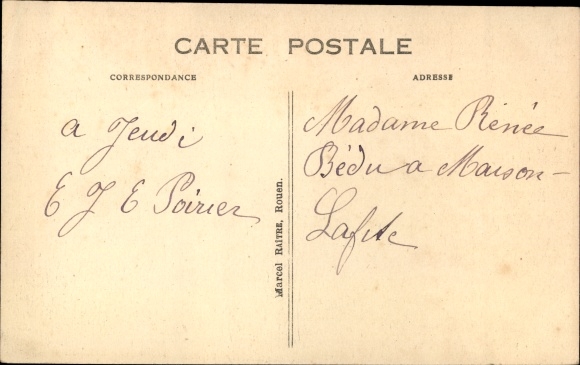 CARTE POSTALE
CORRESPONDANCE
a Jeudi
E J E Poirier
Marcel RAITRE, Rouen.
ADRESSE
Madame Rénée
Bédu a Maison-
Lafite